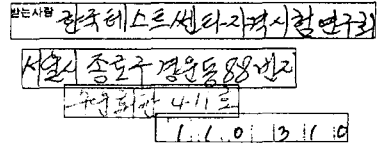 받는사람 한국테스트쎈타-자격시험연구회
서울시 종로구 경운동 88번지
수운회관 411호
110 310